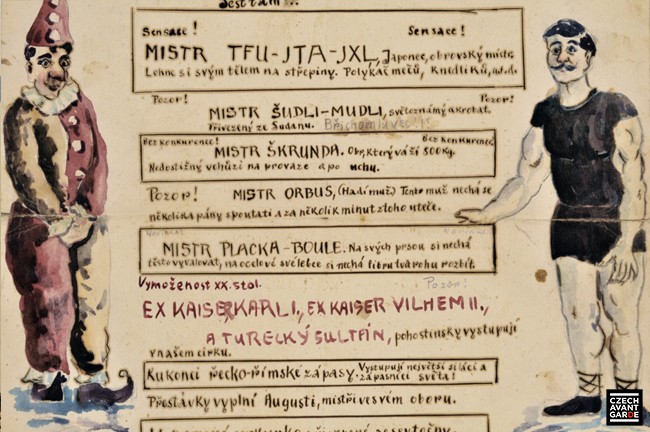 Sensace! Sensace!
MISTR TFU-JTA-JXL, Japonec, obrovský mistr.
Lehne si svým tělem na střepiny. Polykač mečů, Knidlíků, atd.
Pozor! Pozor!
MISTR ŠUDLI-MUDLI, světoznámý akrobat.
Přivezený ze Sudanu. Břichomluvec!!
Bez konkurence! Bez konkurence
MISTR ŠKRUNDA. Obr, který váží 500 Kg.
Nedostižný v chůzi na provaze a po uchu.
Pozor! MISTR ORBUS, (Hadí muž) Tento muž nechá se
několika pány spoutati a za několik minut z toho uteče.
MISTR PLACKA-BOULE. Na svých prsou si nechá
těsto vyvalovat, na ocelové si nechá libru tvarohu rozbít.
Vymoženost XX. stol. Pozor!
EX KAISER KARL I., EX KAISER VILHEM II.,
A TURECKÝ SULTÁN, pohostinsky vystupují
v našem cirku.
Ku konci řecko-římské zápasy. Vystupují největší siláci a
zápasníci světa!
Přestávky vyplní Augusti, mistři ve svém oboru.
CZECH
AVANT
GARDE